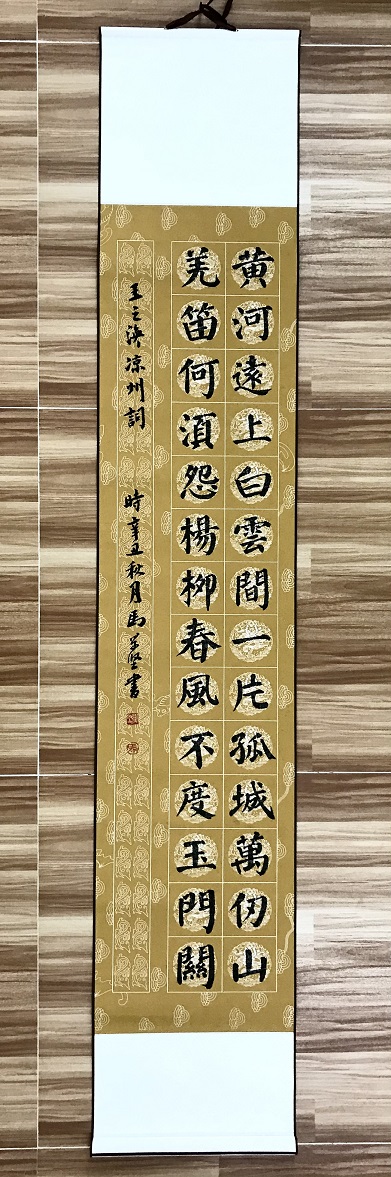 黄河遠上白雲間一片孤城萬仞山
羌笛何須怨楊柳春風不度玉門關
王之渙凉州詞 時辛丑秋月馬學堅書